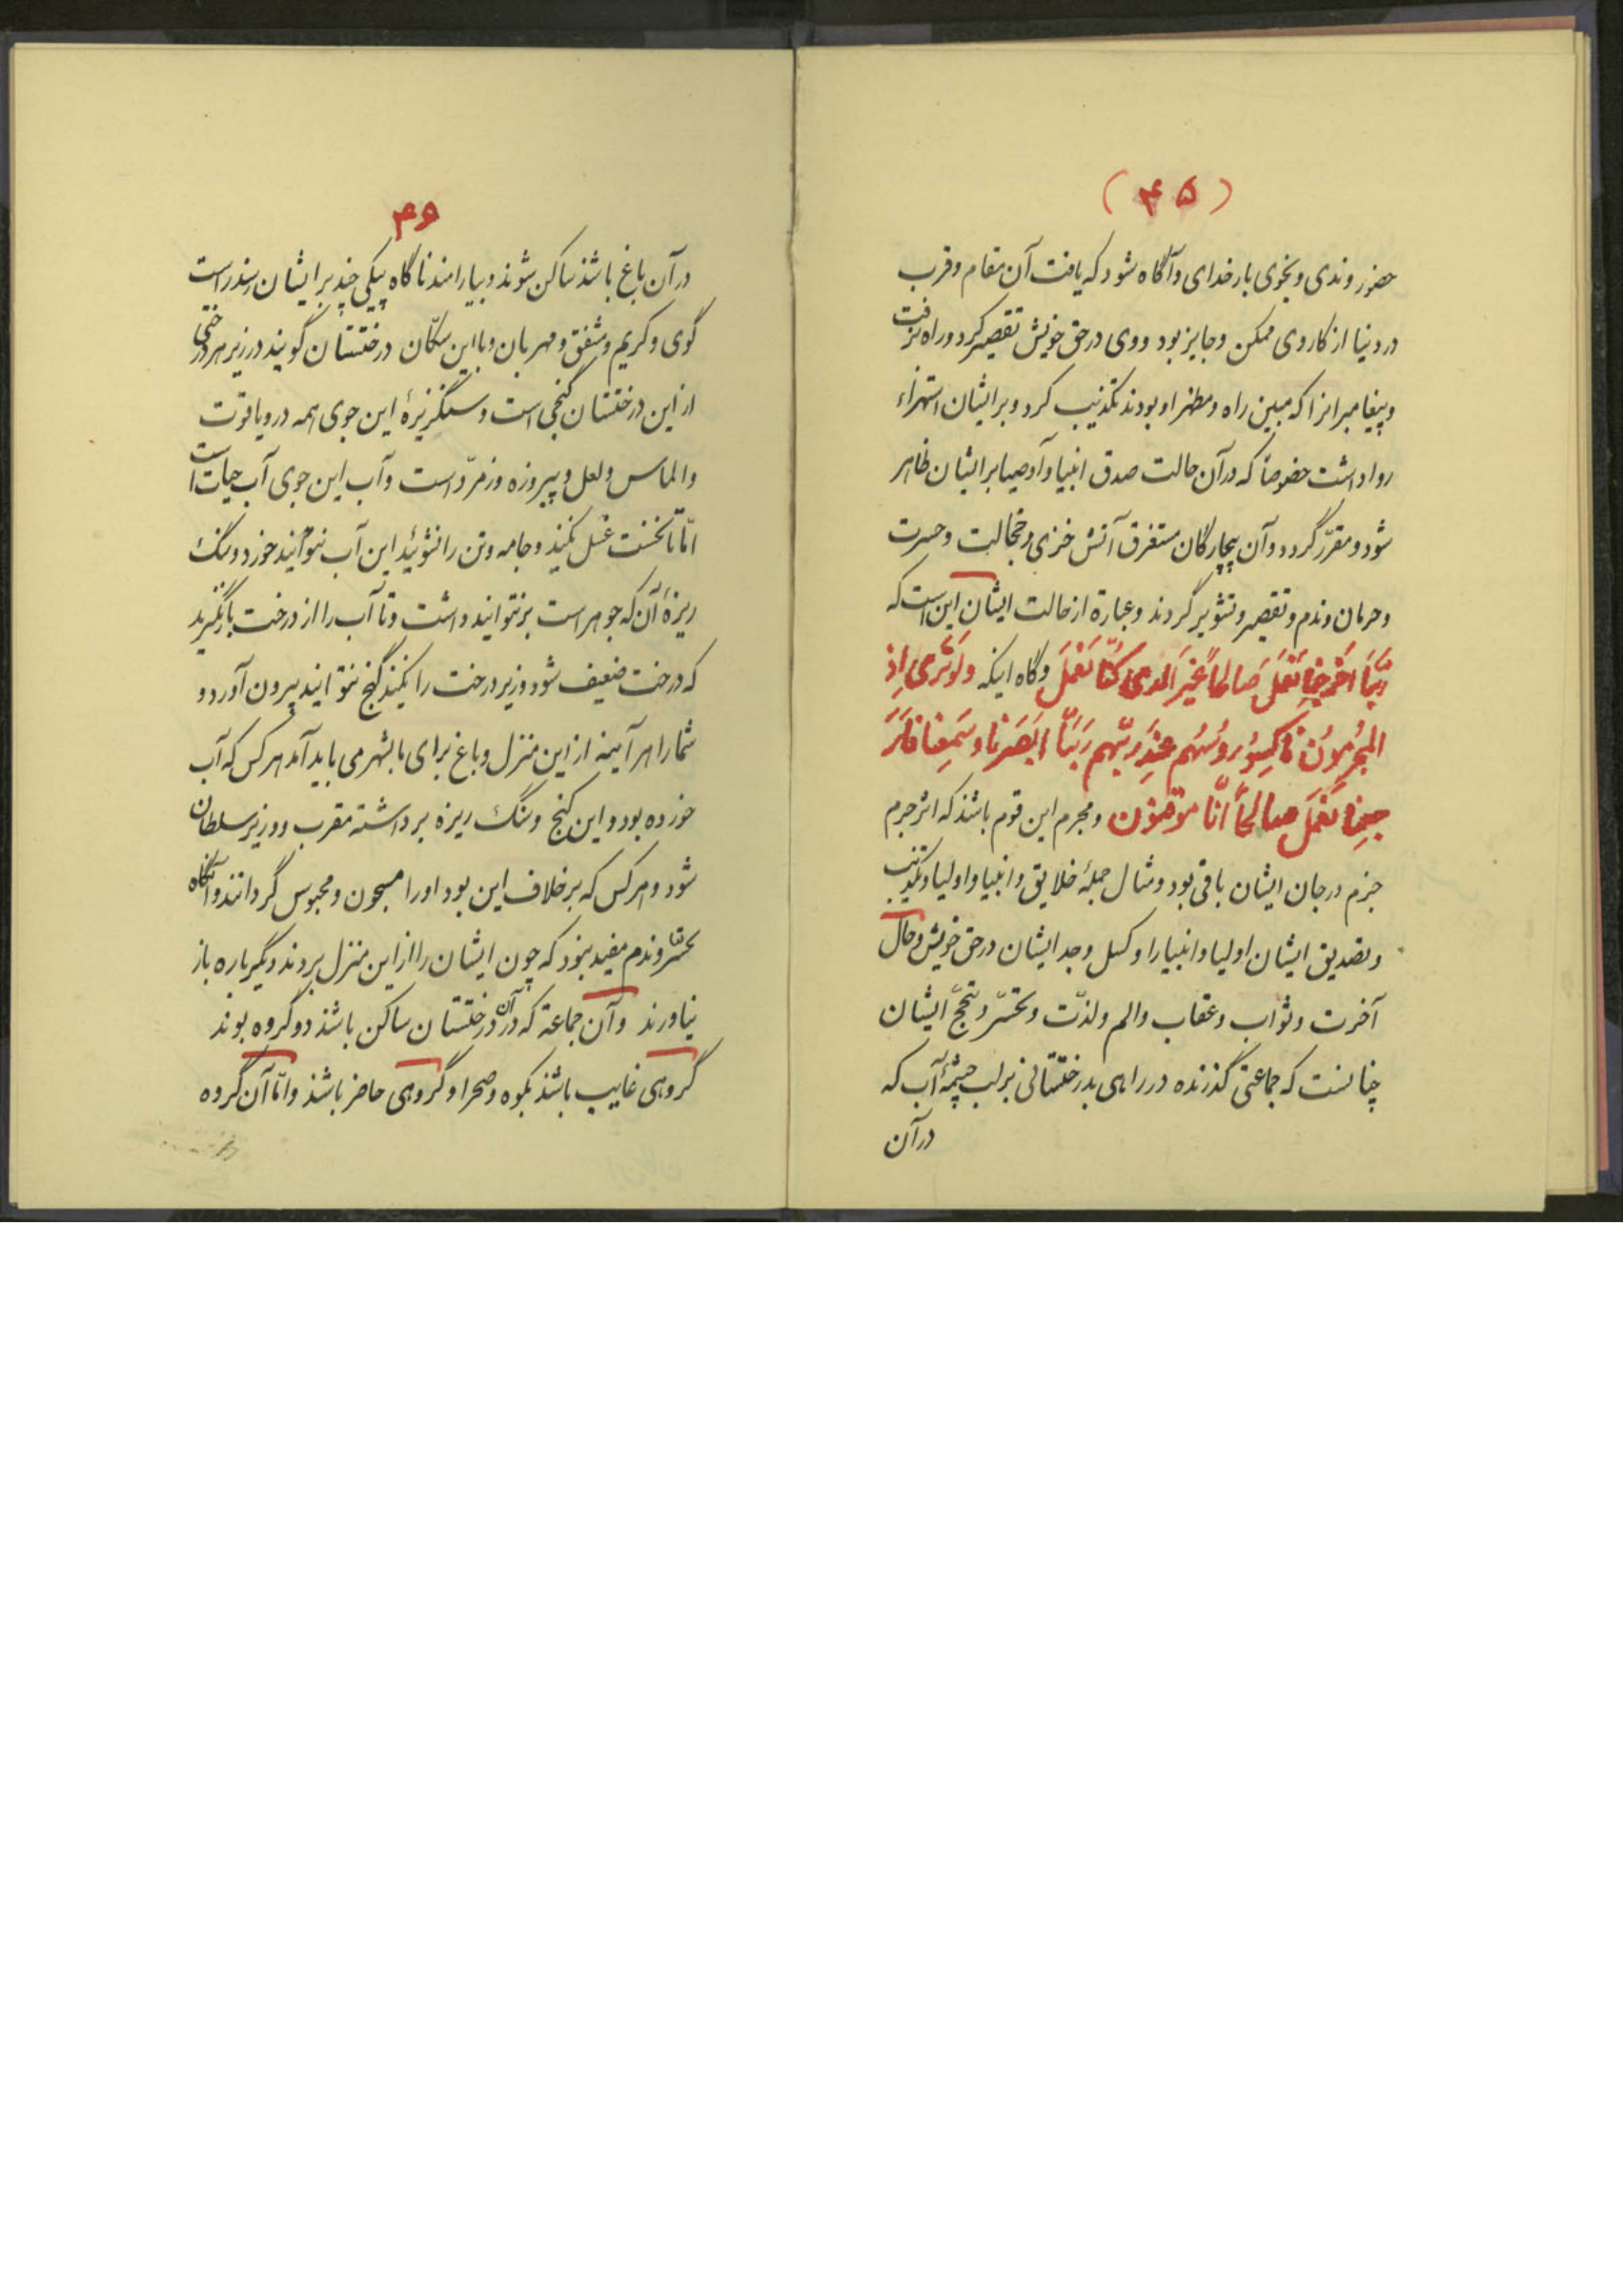 (۴۵)
حضور وندی و نجوی بار خدای و آگاه شود که یافت آن مقام و قرب
در دنیا از کار وی ممکن و جایز بود و وی در حق خویش تقصیر کرد و راه نرفت
و پیغامبرانرا که مبین راه و مظهر او بودند تکذیب کرد و بر ایشان استهزاء
روا داشت خصوصاً که در آن حالت صدق انبیا و اوصیا بر ایشان ظاهر
شود و مقرّر گردد و آن بیچارگان مستغرق آتش خزی و خجالت و حسرت
و حرمان و ندم و تقصیر و تشویر گردند و عبارة از حالت ایشان این است که
رَبَّنَا اَخْرِجْنا نَعْمَلْ صَالِحاً غَیْرَ الَّذی کُنَّا نَعْمَلُ و گاه اینکه وَلَوْ تَرَی اِذِ
المُجْرِمُونَ نَاکِسُوا رُوسِهِم عِنْدَ رَبِّهِم رَبَّنَا اَبْصَرْنَا وَسَمِعْنَا فَارْ
جِعْنَا نَعْمَلْ صَالِحاً اِنَّا مُوقِنُون و مجرم این قوم باشند که اثر جرم
جزم در جان ایشان باقی بود و مثال جملهٔ خلایق و انبیا و اولیا و تکذیب
و تصدیق ایشان اولیا و انبیا را و کسل و جد ایشان در حق خویش و حال
آخرت و ثواب و عقاب و الم و لذّت و تحسّر و ایشان
چنانست که جماعتی گذرنده در راهی بدرختستانی بر لب چشمهٔ آب که
در آن
۴۶
در آن باغ باشند ساکن شوند و بیارامند ناگاه پیکی چند بر ایشان رسند راست
گوی و کریم و مشفق و مهربان و با این سکّان درختستان گویند در زیر هر درختی
از این درختستان گنجی است و سنگریزهٔ این جوی همه در و یاقوت
و الماس و لعل و پیروزه و زمرّد است و آب این جوی آب حیات است
امّا تا نخست غسل نکنید و جامه و تن را نشوئید این آب نتوانید خورد و سنگ
ریزهٔ آن که جوهر است بر نتوانید داشت و تا آب را از درخت باز نگیرید
که درخت ضعیف شود و زیر درخت را نکنید گنج نتوانید بیرون آورد و
شما را هر آینه از این منزل و باغ برای ما بشهر می باید آمد هر کس که آب
خورده بود و این گنج و سنگ ریزه برداشته مقرب و وزیر سلطان
شود و هر کس که بر خلاف این بود او را مسجون و محبوس گردانند و آنگاه
تحسّر و ندم مفید نبود که چون ایشان را از این منزل بردند دیگر باره باز
نیاورند و آن جماعة که در آن درختستان ساکن باشند دو گروه بوند
گروهی غایب باشند بکوه و صحرا و گروهی حاضر باشند و امّا آن گروه